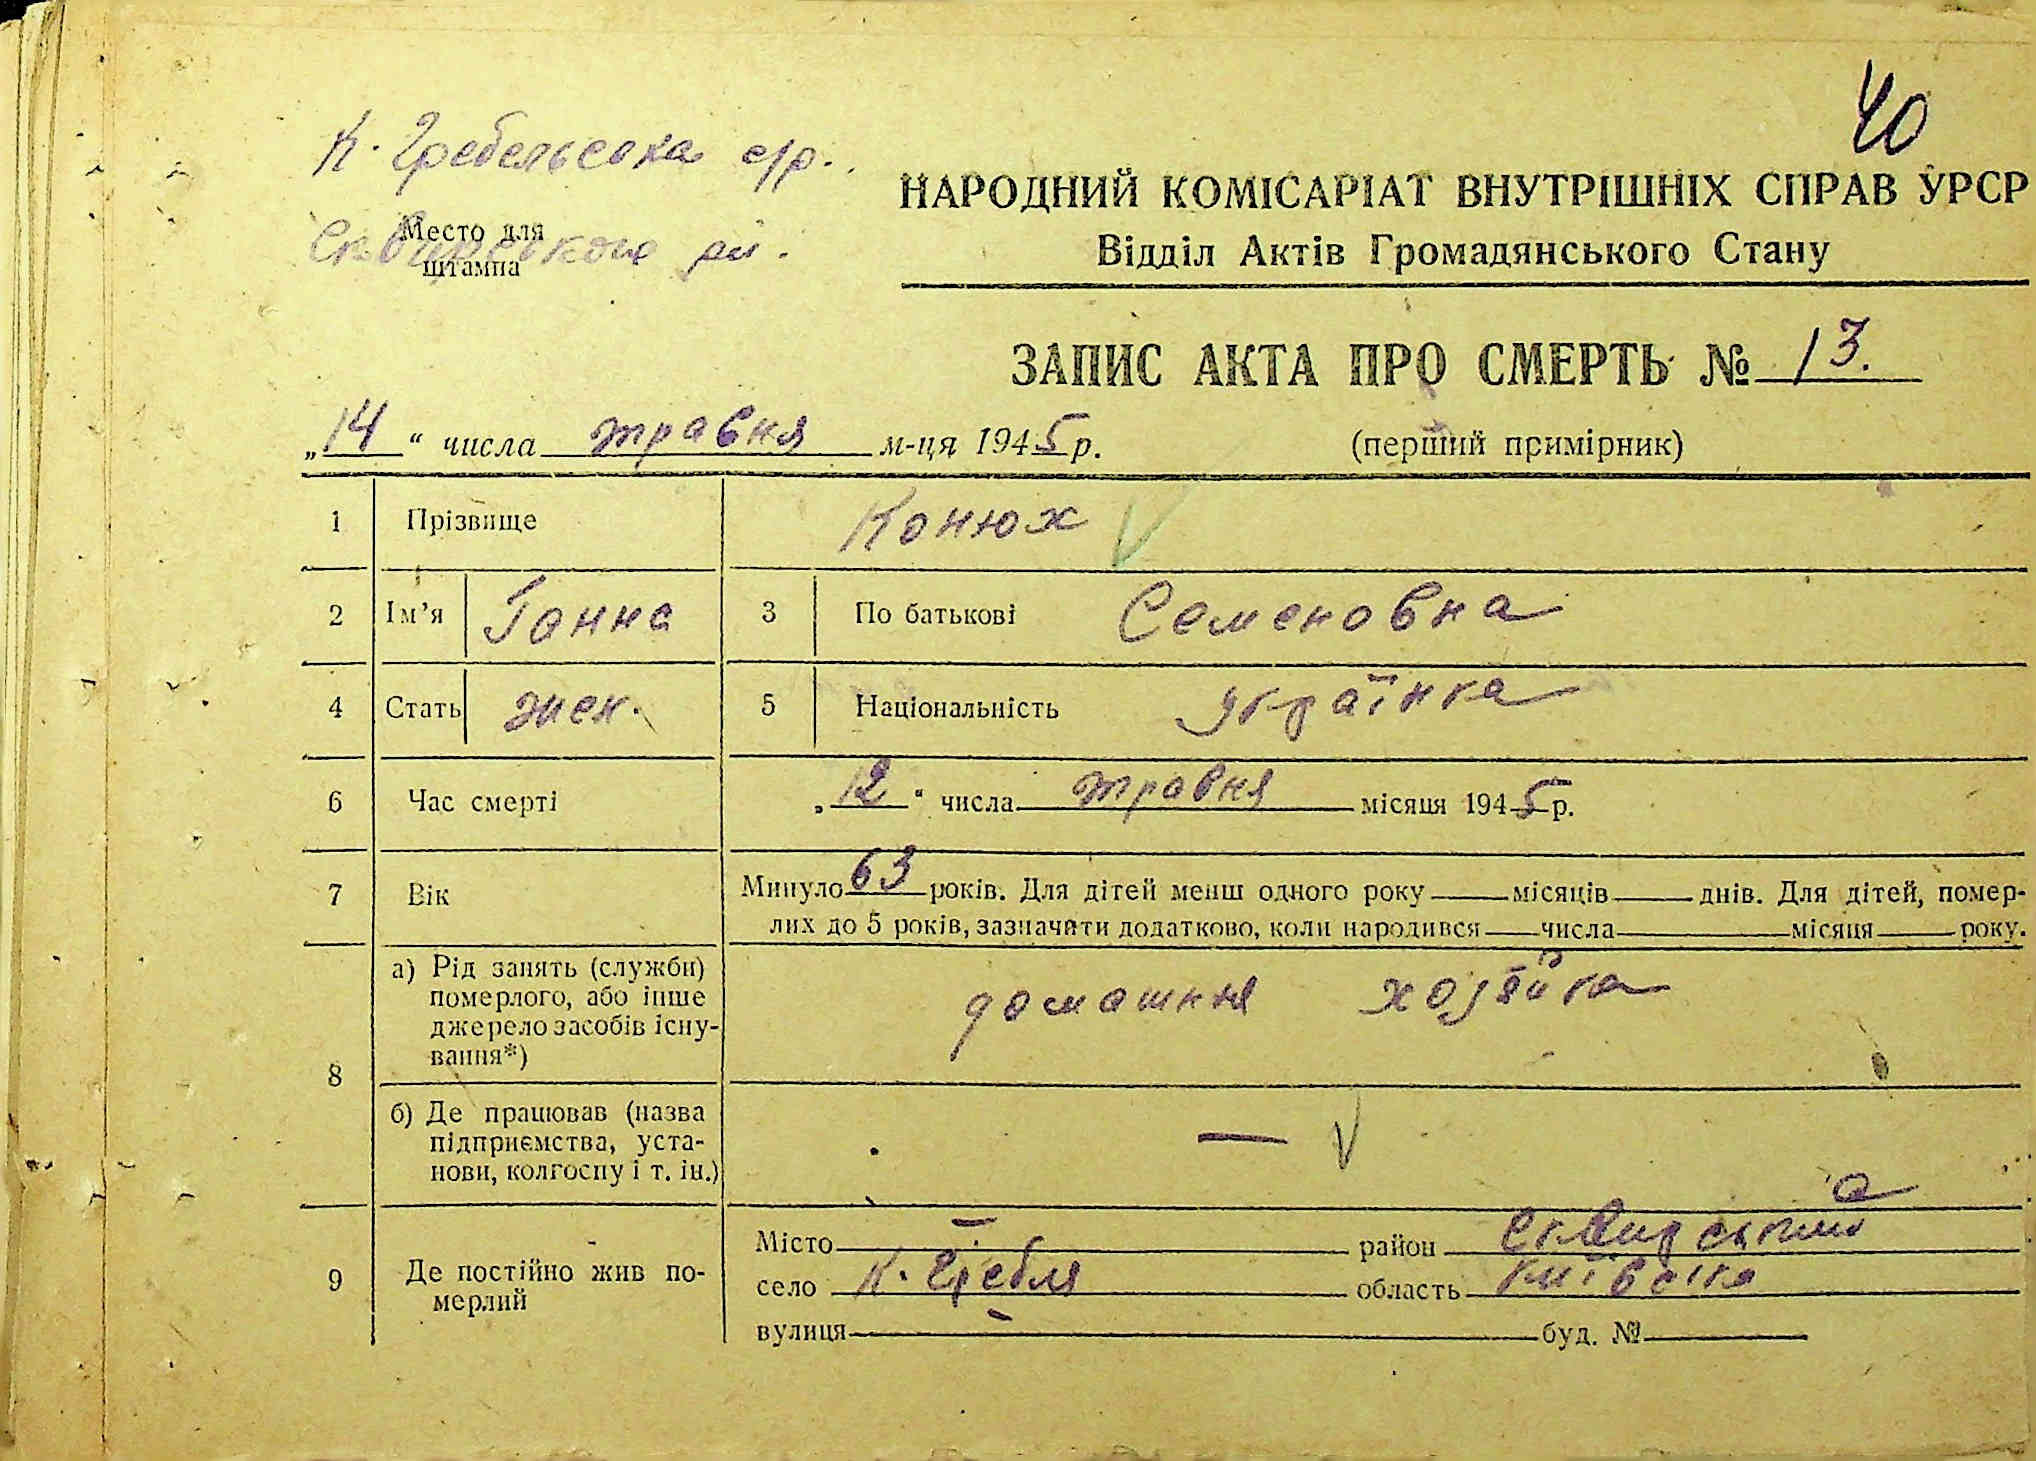 40
К. Гребельська с/р.
Сквирського р-ну.
Место для
штампа
НАРОДНИЙ КОМІСАРІАТ ВНУТРІШНІХ СПРАВ УРСР
Відділ Актів Громадянського Стану
ЗАПИС АКТА ПРО СМЕРТЬ № 13.
„14“ числа травня м-ця 1945 р.
(перший примірник)
1 Прізвище Конюх
2 Ім'я Ганна 3 По батькові Семеновна
4 Стать жен. 5 Національність українка
6 Час смерті „12“ числа травня місяця 1945 р.
7 Вік Минуло 63 років. Для дітей менш одного року місяців днів. Для дітей, помер-
лих до 5 років, зазначити додатково, коли народився числа місяця року.
8 а) Рід занять (служби)
померлого, або інше
джерело засобів існу-
вання*)
домашня хозяйка
б) Де працював (назва
підприємства, уста-
нови, колгоспу і т. ін.)
—
9 Де постійно жив по-
мерлий
Місто — район Сквирський
село К. Гребля область Київська
вулиця — буд. №